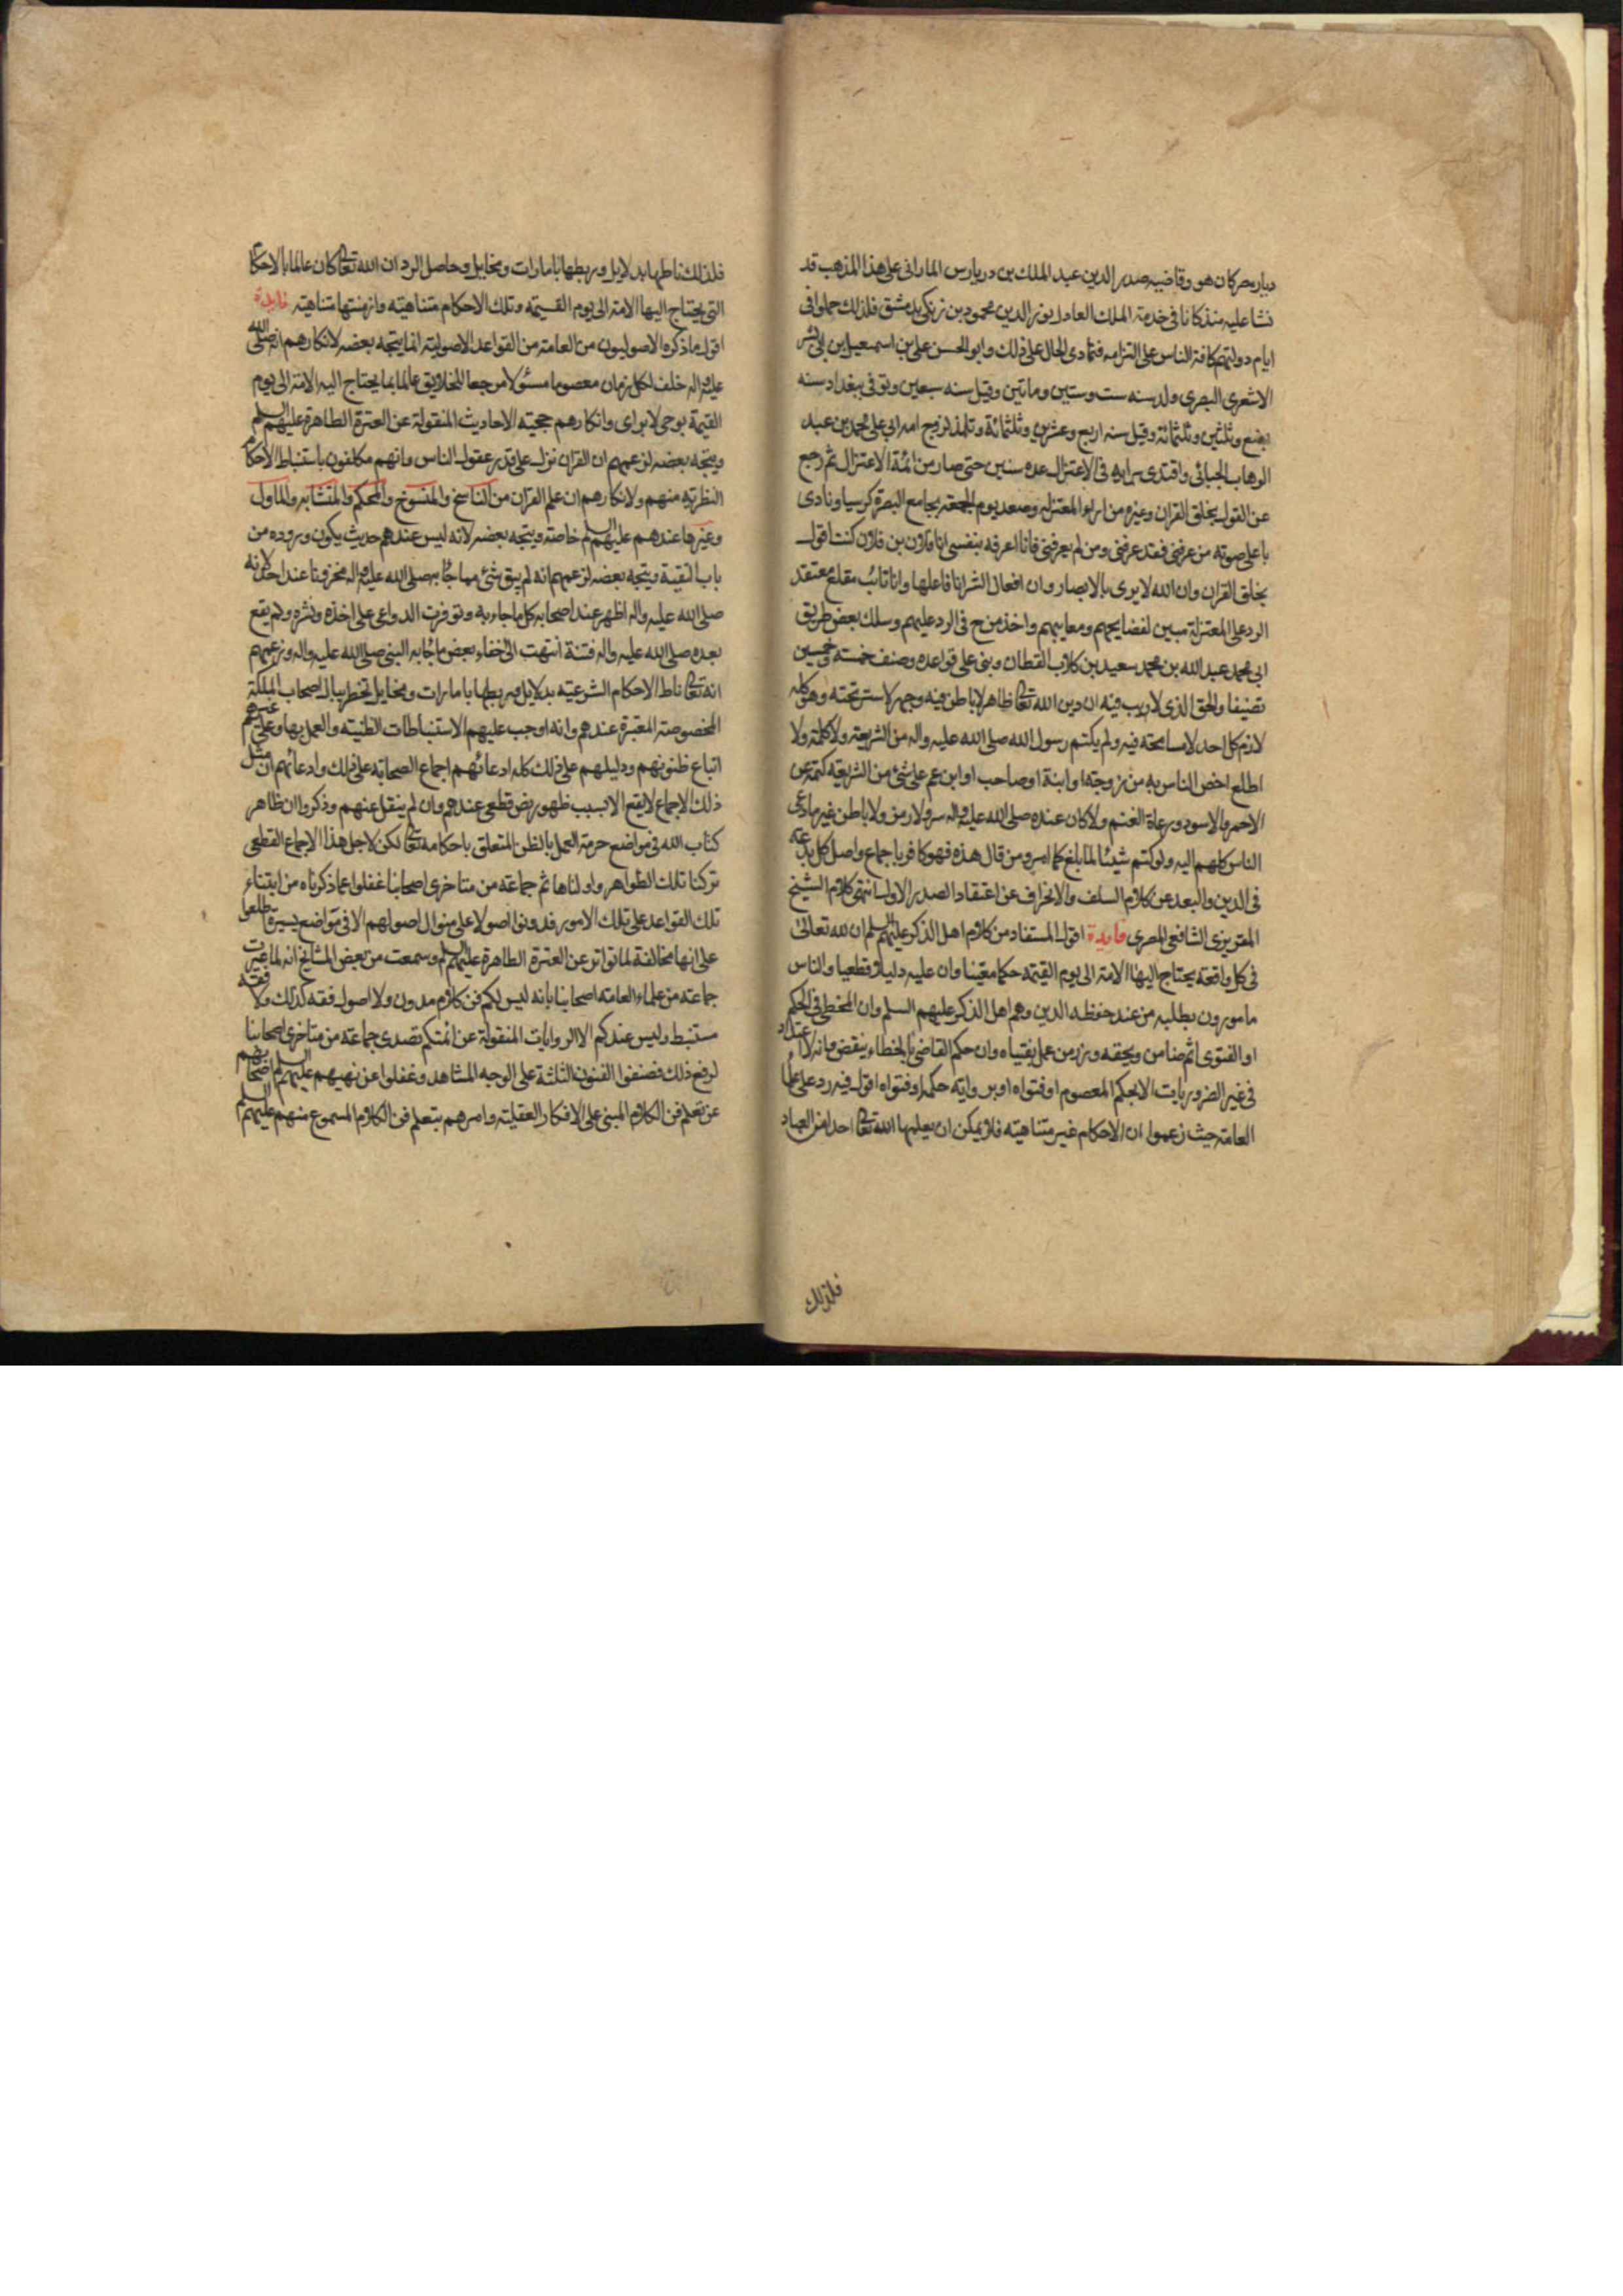 ديار مصر كان هو وقاضيه صدر الدين عبد الملك بن درياس المارانى على هذا المذهب قد
نشا عليه منذ كانا فى خدمة الملك العادل نور الدين محمود بن زنكى بدمشق فلذلك حملوا فى
ايام دولتهم كافة الناس على التزامه فتمادى الحال على ذلك وابو الحسن على بن اسمعيل بن ابى بشر
الاشعرى البصرى ولد سنه ست وستين وماتين وقيل سنه سبعين وتوفى ببغداد سنه
بضع وثلثين وثلثمائة وقيل سنه اربع وعشرين وثلثمائة وتلمذ لزوج امه ابى على محمد بن عبد
الوهاب الجبائى واقتدى برايه فى الاعتزال عده سنين حتى صار من ائمة الاعتزال ثم رجع
عن القول بخلق القران وغيره من اراء المعتزله وصعد يوم الجمعه بجامع البصرة كرسيا ونادى
باعلى صوته من عرفنى فقد عرفنى ومن لم يعرفنى فانا اعرفه بنفسى انا فلان بن فلان كنت اقول
بخلق القران وان الله لا يرى بالابصار وان افعال الشر انا فاعلها وانا تائب مقلع معتقد
الرد على المعتزلة مبين لفضايحهم ومعايبهم واخذ من ح فى الرد عليهم وسلك بعض طريق
ابى محمد عبد الله بن محمد سعيد بن كلاب القطان وبنى على قواعده وصنف خمسة وخمسين
تصنيفا والحق الذى لا ريب فيه ان دين الله تعالى ظاهر لا باطن فيه وجهر لا ستر تحته وهو كله
لازم كل احد لا مسامحته فيه ولم يكتم رسول الله صلى الله عليه واله من الشريعة ولا كلمة ولا
اطلع اخص الناس به من زوجته او ابنة او صاحب او ابن عم على شئ من الشريعة كتمه عن
الاحمر والاسود ورعاة الغنم ولا كان عنده صلى الله عليه واله سر ولا رمز ولا باطن غير ما دعى
الناس كلهم اليه ولو كتم شيئا لما بلغ كما امر ومن قال هذه فهو كافر باجماع واصل كل بدعة
فى الدين والبعد عن كلام السلف والانحراف عن اعتقاد الصدر الاول انتهى كلام الشيخ
المقريزى الشافعى المصرى فايدة اقول المستفاد من كلام اهل الذكر عليهم السلم ان لله تعالى
فى كل واقعه يحتاج اليها الامة الى يوم القيمة حكما معينا وان عليه دليلا قطعيا والناس
مامورون بطلبه من عند حفظه الدين وهم اهل الذكر عليهم السلم وان المخطى فى الحكم
او الفتوى اثم ضامن ويحقه وزر من عمل بفتياه وان حكم القاضى بالخطاء ينقض وانه لا اعتداد
فى غير الضروريات الا بحكم المعصوم او فتواه او برواية حكمه او فتواه اقول فيه رد على علما
العامة حيث زعموا ان الاحكام غير متناهيته فلا يمكن ان يعلمها الله تعالى احدا من العباد
فلذلك
فلذلك ناطها بدلايل وربطها بامارات ومخايل وحاصل الرد ان الله تعالى كان عالما بالاحكام
التى يحتاج اليها الامة الى يوم القيمة وتلك الاحكام متناهيته وازمنتها متناهيته فايدة
اقول ما ذكره الاصوليون من العامة من القواعد الاصولية انما يتجه بعضه لانكارهم انه صلى الله
عليه واله خلف لكل زمان معصوما مسئولا مرجعا للخلايق عالما بما يحتاج اليه الامة الى يوم
القيمة بوحى لا براى وانكارهم حجيته الاحاديث المنقولة عن العترة الطاهرة عليهم السلم
ويتجه بعضه لزعمهم ان القران نزل على قدر عقول الناس وانهم مكلفون باستنباط الاحكام
النظريه منهم ولانكارهم ان علم القران من الناسخ والمنسوخ والمحكم والمتشابه والماول
وغيرها عندهم عليهم السلم خاصة ويتجه بعضه لانه ليس عندهم حديث يكون وروده من
باب التقية ويتجه بعضه لزعمهم انه لم يبق شئ مما جاء به صلى الله عليه واله مخزونا عند احد لانه
صلى الله عليه واله اظهر عند اصحابه كل ما جاء به وتوفرت الدواعى على اخذه ونشره ولم يقع
بعده صلى الله عليه واله فتنة انتهت الى اخفاء بعض ما جاء به النبى صلى الله عليه واله وزعمهم
انه تعالى ناط الاحكام الشرعية بدلايل وربطها بامارات ومخايل تخطر ببال اصحاب الملكة
المخصوصة المعتبرة عندهم وانه اوجب عليهم الاستنباطات الظنيته والعمل بها وعلى غيرهم
اتباع ظنونهم ودليلهم على ذلك كله ادعائهم اجماع الصحابة على ذلك وادعائهم ان مثل
ذلك الاجماع لا يقع الا بسبب ظهور نص قطعى عندهم وان لم ينقل عنهم وذكروا ان ظاهر
كتاب الله فى مواضع حرمة العمل بالظن المتعلق باحكامه تعالى لكن لاجل هذا الاجماع القطعى
تركنا تلك الظواهر واولناها ثم جماعة من متاخرى اصحابنا غفلوا عما ذكرناه من ابتناء
تلك القواعد على تلك الامور فدونوا اصولا على منوال اصولهم الا فى مواضع يسيرة اطلعوا
على انها مخالفة لما تواتر عن العترة الطاهرة عليهم السلم وسمعت من بعض المشايخ انه لما عيرت
جماعة من علماء العامه اصحابنا بانه ليس لكم فن كلام مدون ولا اصول فقه كذلك ولا فقه
مستنبط وليس عندكم الا الروايات المنقولة عن ائمتكم تصدى جماعة من متاخرى اصحابنا
لرفع ذلك فصنفوا الفنون الثلثة على الوجه المشاهد وغفلوا عن نهيهم عليهم السلم اصحابهم
عن تعلم فن الكلام المبنى على الافكار العقليته وامرهم بتعلم فن الكلام المسموع منهم عليهم السلم